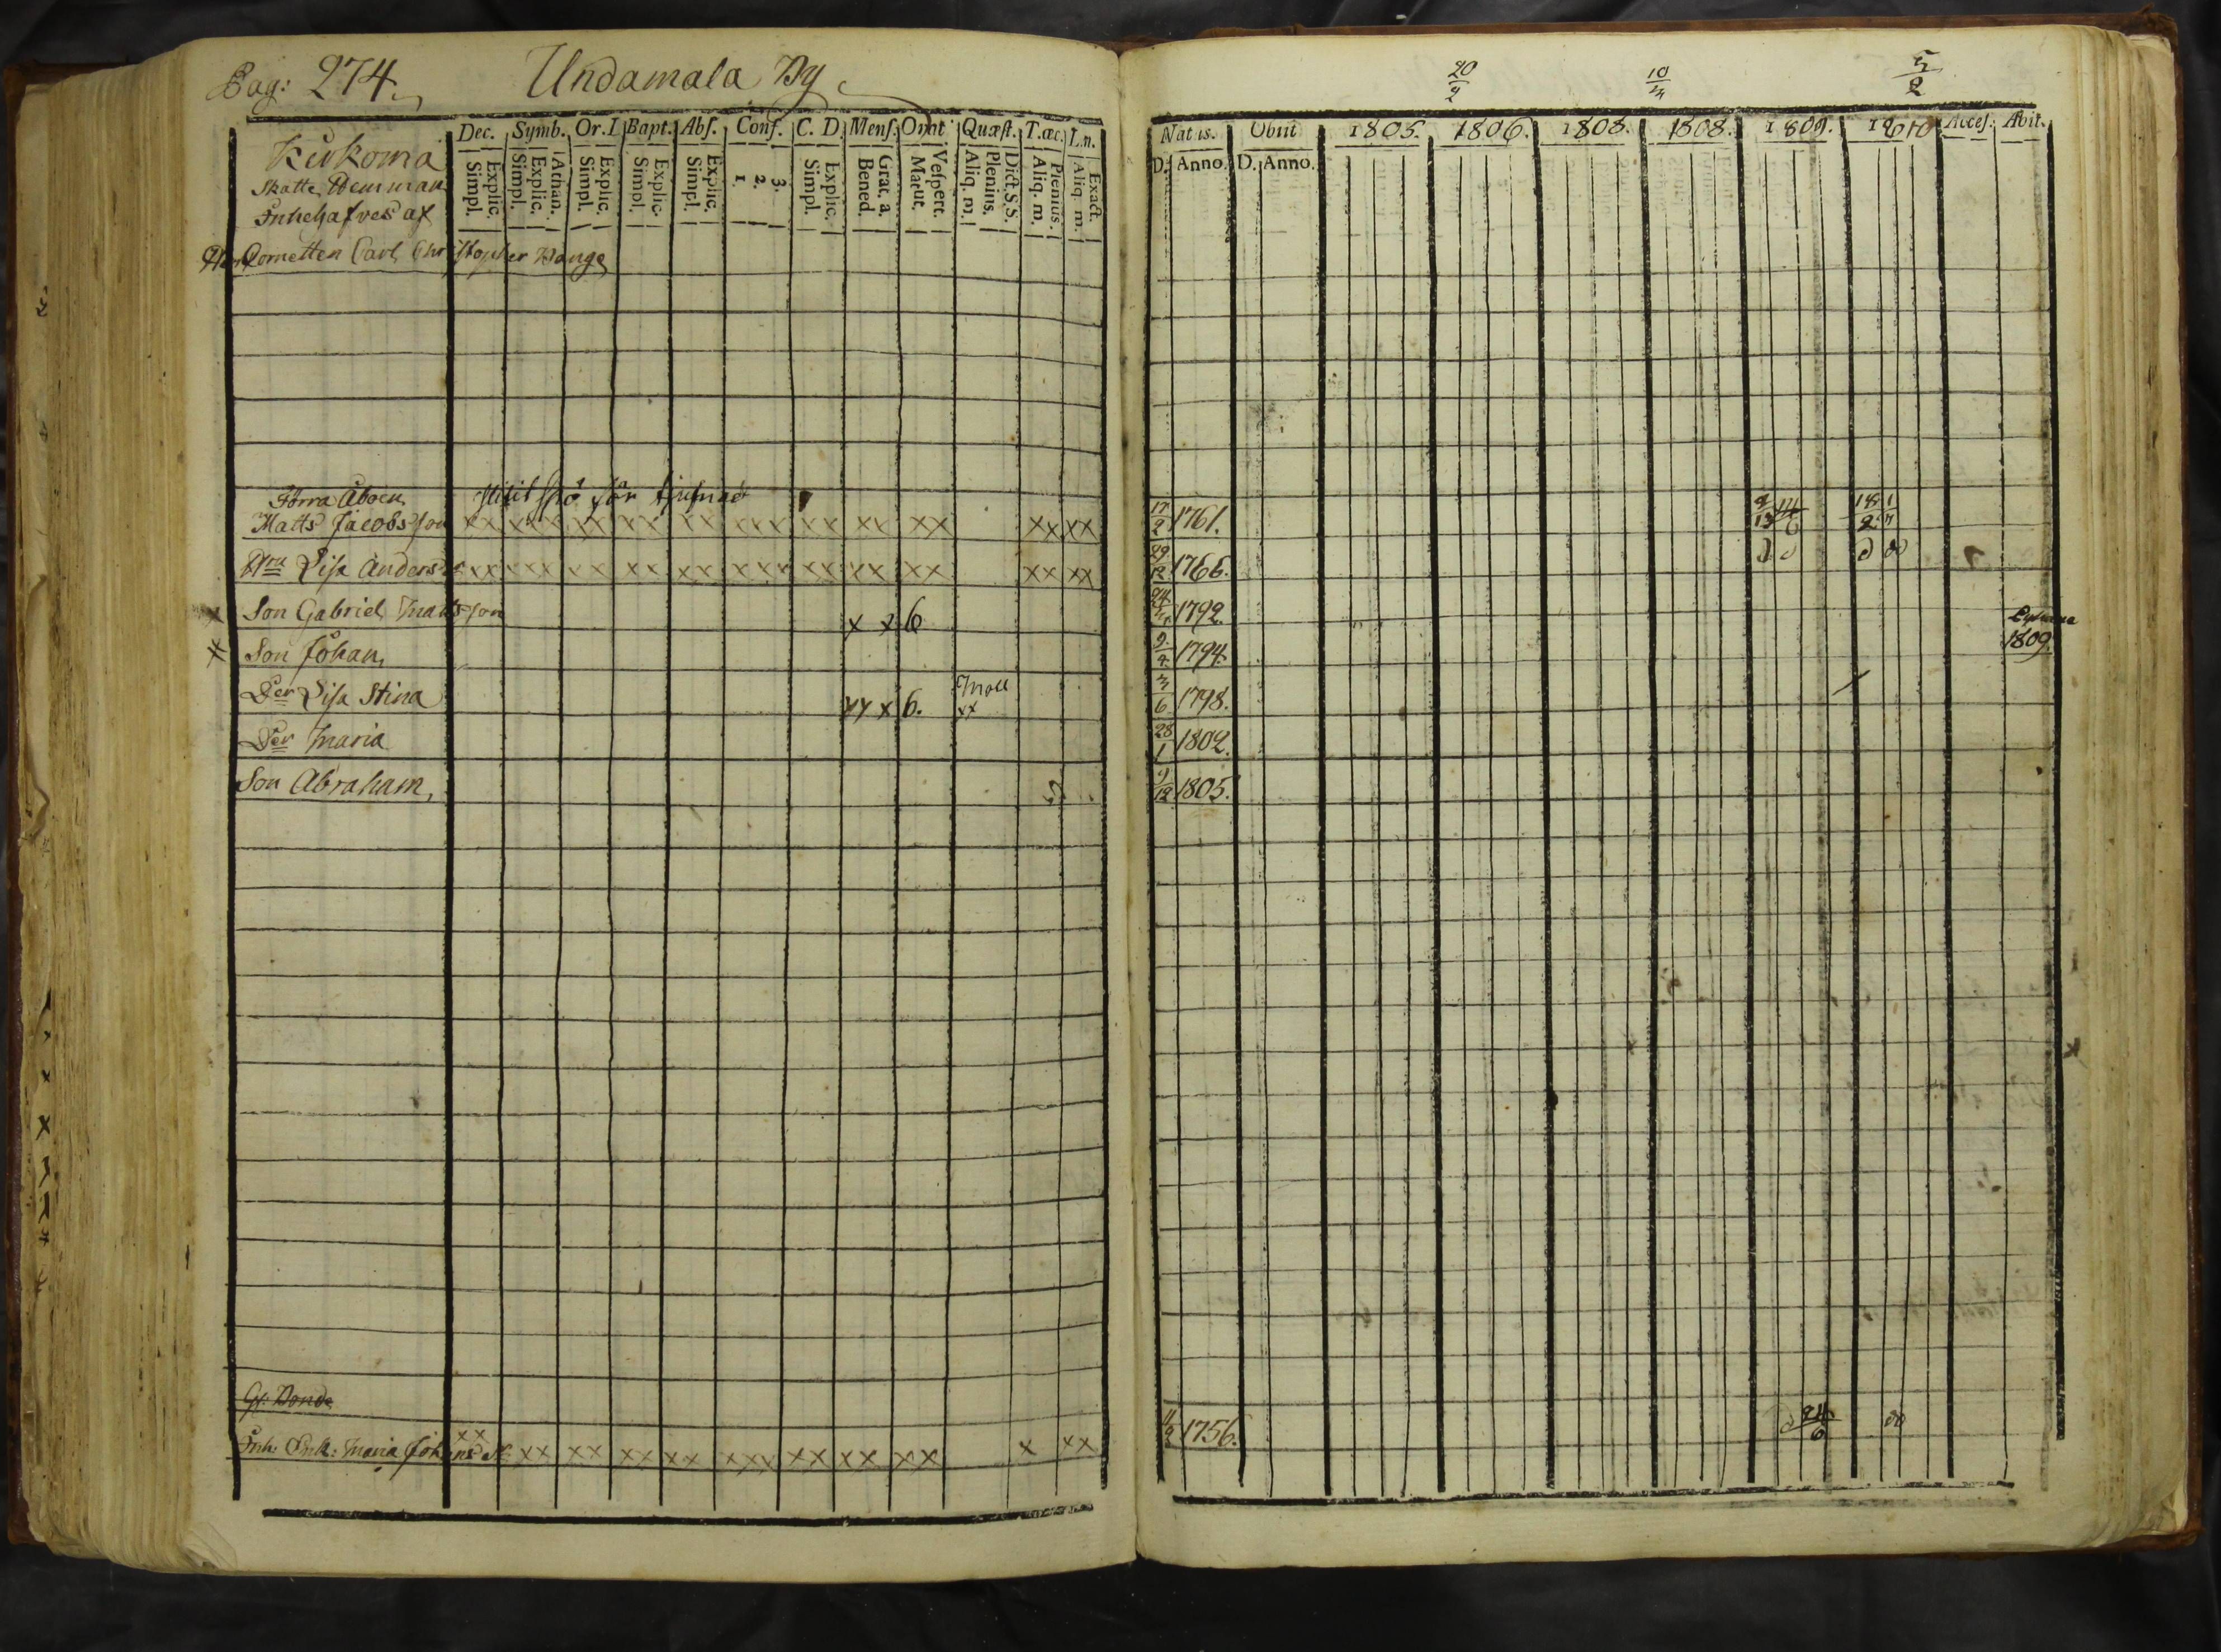 Pag: 274. Undamala By
20/2 10/3 5/2
Dec. Symb. Or. I. Bapt. Abs. Conf. C. D. Mens. Omt Quæst. T. æc. Natus. Obiit 1805. 1806. 1808. 1808. 1809. 1810 Acces. Abit.
Explic. Simpl. Athan. Explic. Simpl. Explic. Simpl. Explic. Simpl. Explic. Simpl. 3. 2. 1. Explic. Simpl. Grat. a. Bened. Vespert. Matut. Dict. S. S. Plenius. Aliq. m. Plenius. Aliq. m. Exact. Aliq. m. D. Anno. D. Anno.
Kukoma
Skatte Hemman
Innehafves af
Cornetten Carl Christopher
Förra Åboen för
Matts Jacobsson xx xxx xx xx xx xxx xx xx xx xx xx 17/2 1761.
Hru Lisa Anders xx xxx xx xx xx xxx xx xx xx xx xx 29/12 1766.
x Son Gabriel Mattsson x x 6 1792.
x Son Johan 1794. 1809.
Der Lisa Stina xx x 6. xx 3/6 1798.
Der Maria 28/1 1802.
Son Abraham, 9/12 1805.
Inh: Enk: Maria Johans xx xx xx xx xx xxx xx xx xx x xx 1756. 24/6